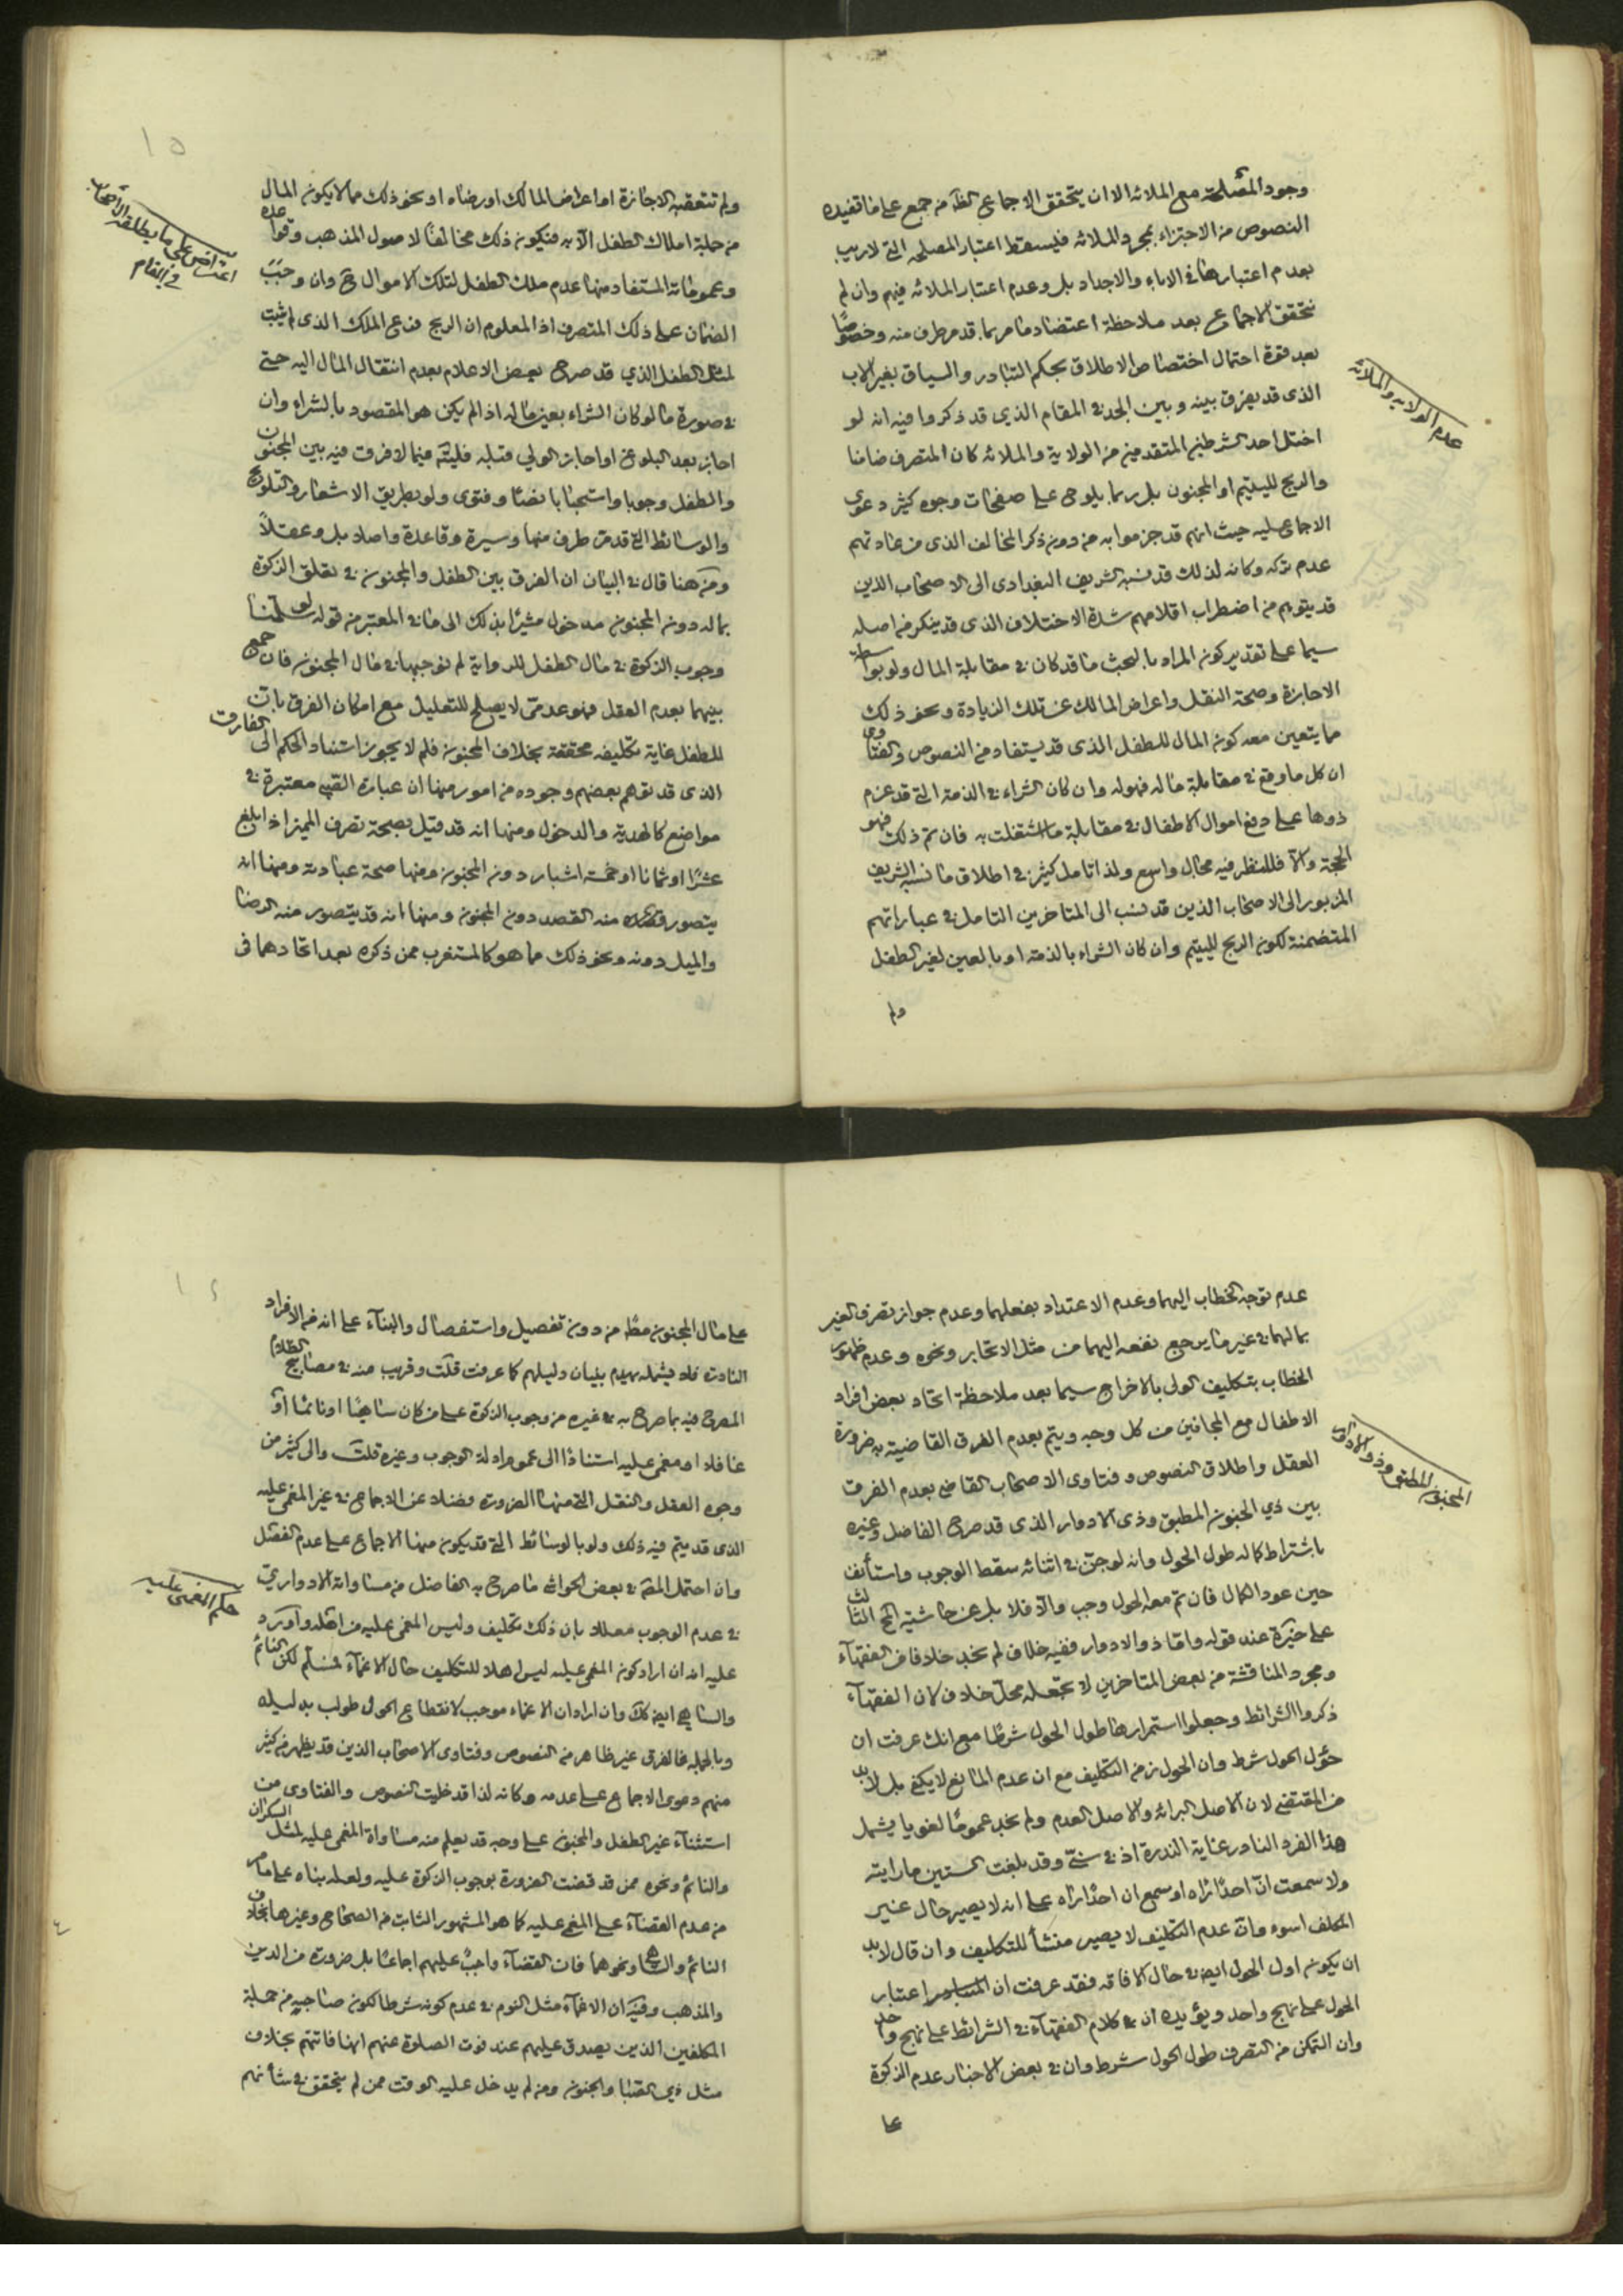 وجود المصلحة مع الملائه الا ان يتحقق الاجماع الظه من جمع على ما تفيده
النصوص من الاجتزاء بمجرد الملائه فليسقط اعتبار المصلحه التى لاريب
بعدم اعتبارها فى الاباء والاجداد بل وعدم اعتبار الملائه فيهم وان لم
نتحقق الاجماع بعد ملاحظة اعتضاد مامر بما قدمر طرف منه وخصوصًا
بعد قوة احتمال اختصاص الاطلاق بحكم التبادر والسياق بغير الاب
الذى قد يفرق بينه وبين الجد فى المقام الذي قد ذكروا فيه انه لو
اختل احد الشرطين المتقدمين من الولاية والملائه كان المتصرف ضامنا
والربح لليتيم او المجنون بل ربما يلوح على صفحات وجوه كثير دعوى
الاجماع عليه حيث انهم قد جزموا به من دون ذكر المخالف الذى من عادتهم
عدم تركه وكانه لذلك قد نسبه الشريف البغدادى الى الاصحاب الذين
قد يتوهم من اضطراب اقلامهم شدة الاختلاف الذى قد ينكر من اصله
سيما على تقدير كون المراد بالبحث ما قد كان فى مقابلة المال ولو بواسطة
الاجازة وصحة النقل واعراض المالك عن تلك الزيادة ونحو ذلك
مما يتعين معه كون المال للطفل الذى قد يستفاد من النصوص والفتاوى
ان كل ما وقع فى مقابلة ماله فهو له وان كان الشراء فى الذمة التى قد عزم
ذوها على دفع اموال الاطفال فى مقابلة ما اشتغلت به فان تم ذلك فهو
الحجة والا فللنظر فيه مجال واسع ولذا تامل كثير فى اطلاق ما نسبه الشريف
المزبور الى الاصحاب الذين قد نسب الى المتاخرين التامل فى عباراتهم
المتضمنة لكون الربح لليتيم وان كان الشراء بالذمة او بالعين لغير الطفل
ولم
عدم الولايه والملائه
ولم تتعقبه الاجازة اما اعراض المالك او رضاه او نحو ذلك مما لا يكون المال
من جملة املاك الطفل الا به فيكون ذلك مخالفًا لاصول المذهب وقواعده
وعموماته المستفاد منها عدم ملك الطفل لتلك الاموال ح وان وجب
الضمان على ذلك المتصرف اذ المعلوم ان الربح فرع الملك الذى لم يثبت
لمثل الطفل الذي قد صرح بعض الاعلام بعدم انتقال المال اليه حتى
فى صورة ما لو كان الشراء بعين ماله اذ لم يكن هو المقصود بالشراء وان
اجاز بعد البلوغ او اجاز الولي قبله فليته فيما لا فرق فيه بين المجنون
والطفل وجوبا واستحبابا نصًا وفتوى ولو بطريق الاشعار والتلويح
والوسائط التى قد مر طرف منها وسيرة وقاعدة واصلا بل وعقلاً
ومن هنا قال فى البيان ان الفرق بين الطفل والمجنون فى تعلق الزكوة
بماله دون المجنون مدخول مشيرًا بذلك الى ما فى المعتبر من قوله لو سلمنا
وجوب الزكوة فى مال الطفل للرواية لم نوجبها فى مال المجنون فان جمع
بينهما بعدم العقل فهو عدمى لا يصلح للتعليل مع امكان الفرق بان
للطفل غاية تكليفه محققة بخلاف المجنون فلم لا يجوز استناد الحكم الى الفارق
الذى قد توهم بعضهم وجوده من امور منها ان عبارة الصبى معتبرة فى
مواضع كالهدية والدخول ومنها انه قد قيل بصحة تصرف المميز اذا بلغ
عشرًا او ثمانا او خمسة اشبار دون المجنون ومنها صحة عبادته ومنها انه
يتصور قصده منه القصد دون المجنون ومنها انه قد يتصور منه الرضا
والميل دونه ونحو ذلك مما هو كالمستغرب ممن ذكره بعد اتحادهما فى
اعتراض على ما يطلقه الاصحاب
فى المقام
١٥
عدم توجه الخطاب اليهما وعدم الاعتداد بفعلهما وعدم جواز تصرف الغير
بمالهما فى غير ما يرجع نفعه اليهما من مثل الاتجار ونحوه وعدم ظهور
الخطاب بتكليف الولى بالاخراج سيما بعد ملاحظة اتحاد بعض افراد
الاطفال مع المجانين من كل وجه ويتم بعدم الفرق القاضية به ضرورة
العقل واطلاق النصوص وفتاوى الاصحاب القاضى بعدم الفرق
بين ذي الجنون المطبق وذى الادوار الذى قد صرح الفاضل وغيره
باشتراط كماله طول الحول وانه لو جن فى اثنائه سقط الوجوب واستأنف
حين عود الكمال فان تم معه الحول وجب والا فلا بل عن حاشيته الثالث
على خيرة عند قوله واما ذو الادوار ففيه خلاف لم نجد خلافا من الفقهاء
ومجرد المناقشة من بعض المتاخرين لا تجعله محل خلاف لان الفقهاء
ذكروا الشرائط وجعلوا استمرارها طول الحول شرطا مع انك عرفت ان
حؤل الحول شرط وان الحول زمن التكليف مع ان عدم المانع لا يكفى بل لابد
من المقتضى لان الاصل البرائه والاصل العدم ولم نجد عمومًا لغويا يشمل
هذا الفرد النادر غاية الندرة اذ فى سنى وقد بلغت الستين ما رايته
ولا سمعت ان احدًا راه او سمع ان احدًا راه على انه لا يصير حال غير
المكلف اسوء وان عدم التكليف لا يصير منشأ للتكليف وان قال لا بد
ان يكون اول الحول ايضا فى حال الافاقه فقد عرفت ان المتبادر اعتبار
الحول على نهج واحد ويؤيده ان فى كلام الفقهاء فى الشرائط على نهج واحد
وان التمكن من التصرف طول الحول شرط وان فى بعض الاخبار عدم الزكوة
على
المجنون المطبق وذو الادوار
على مال المجنون مطلقا من دون تفصيل واستفصال والبناء على انه من الافراد
النادرة فلا يشمله يهدم بنيان دليلهم كما عرفت قلت وقريب منه فى مصابيح الظلام
المصرح فيه بما صرح به فى غيره من وجوب الزكوة على من كان ساهيًا او نائمًا او
غافلا او مغمى عليه استنادًا الى عموم ادلة الوجوب وغيره قلت والى كثير من
وجوه العقل والنقل التى منها الضرورة فضلا عن الاجماع فى غير المغمى عليه
الذى قد يتم فيه ذلك ولو بالوسائط التى قد يكون منها الاجماع على عدم الفصل
وان احتمل المص فى بعض الحواشى ما صرح به الفاضل من مساواته الادواري
فى عدم الوجوب معللا بان ذلك تكليف وليس المغمى عليه من اهله واورد
عليه انه ان اراد كون المغمى عليه ليس اهلا للتكليف حال الاغماء فمسلم لكن النائم
والساهى ايضا كذلك وان اراد ان الاغماء موجب لانقطاع الحول طولب بدليله
وبالجمله فالفرق غير ظاهر من النصوص وفتاوى الاصحاب الذين قد يظهر من كثير
منهم دعوى الاجماع على عدمه وكانه لذا قد خليت النصوص والفتاوى من
استثناء غير الطفل والمجنون على وجه قد يعلم منه مساواة المغمى عليه لمثل السكران
والنائم ونحوه ممن قد قضت الضرورة بوجوب الزكوة عليه ولعله بناه على ما مر
من عدم القضاء على المغمى عليه كما هو المشهور الثابت من الصحاح وغيرها بخلاف
النائم والساهى ونحوهما فان القضاء واجب عليهم اجماعًا بل ضرورة من الدين
والمذهب وفيه ان الاغماء مثل النوم فى عدم كونه شرطا لكون صاحبه من جملة
المكلفين الذين يصدق عليهم عند فوت الصلوة عنهم انها فاتتهم بخلاف
مثل ذي الصبا والجنون ومن لم يدخل عليه الوقت ممن لم يتحقق فى شأنهم
حكم المغمى عليه